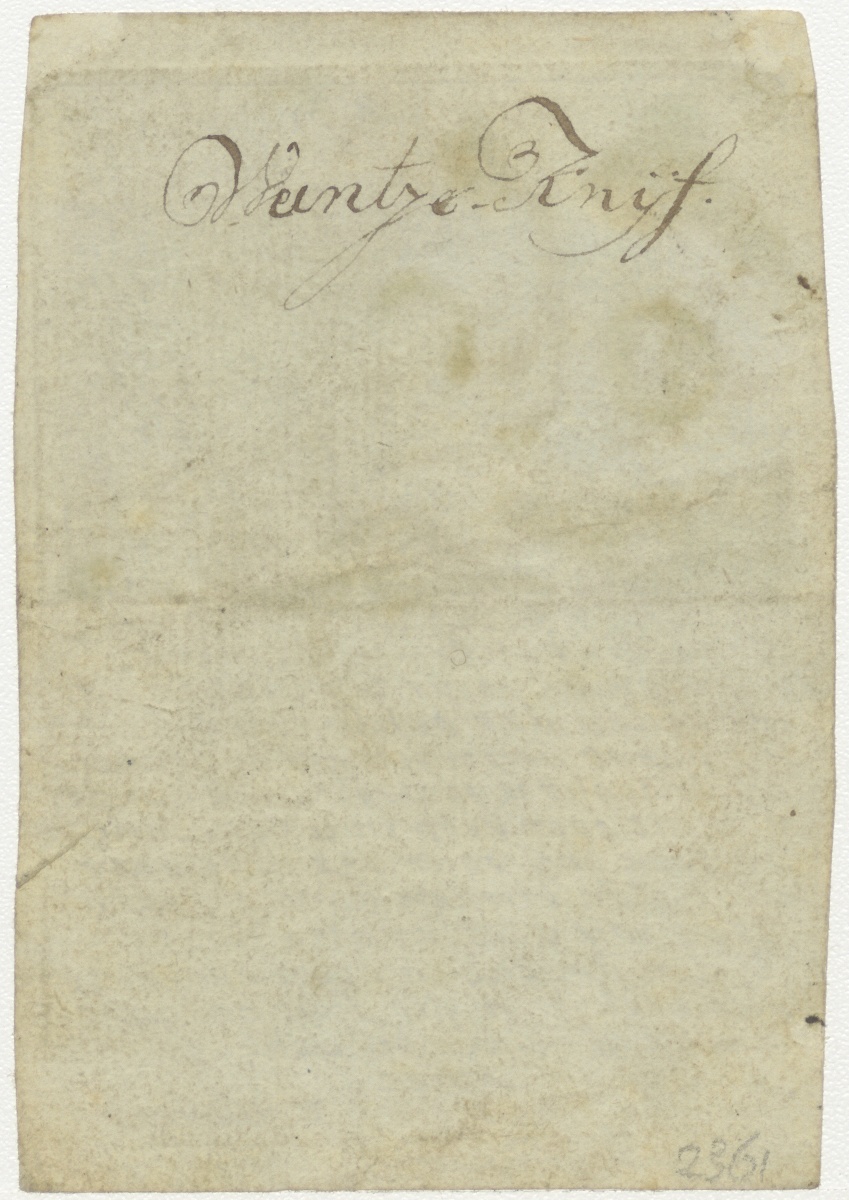 Wantze Knijf.
2361